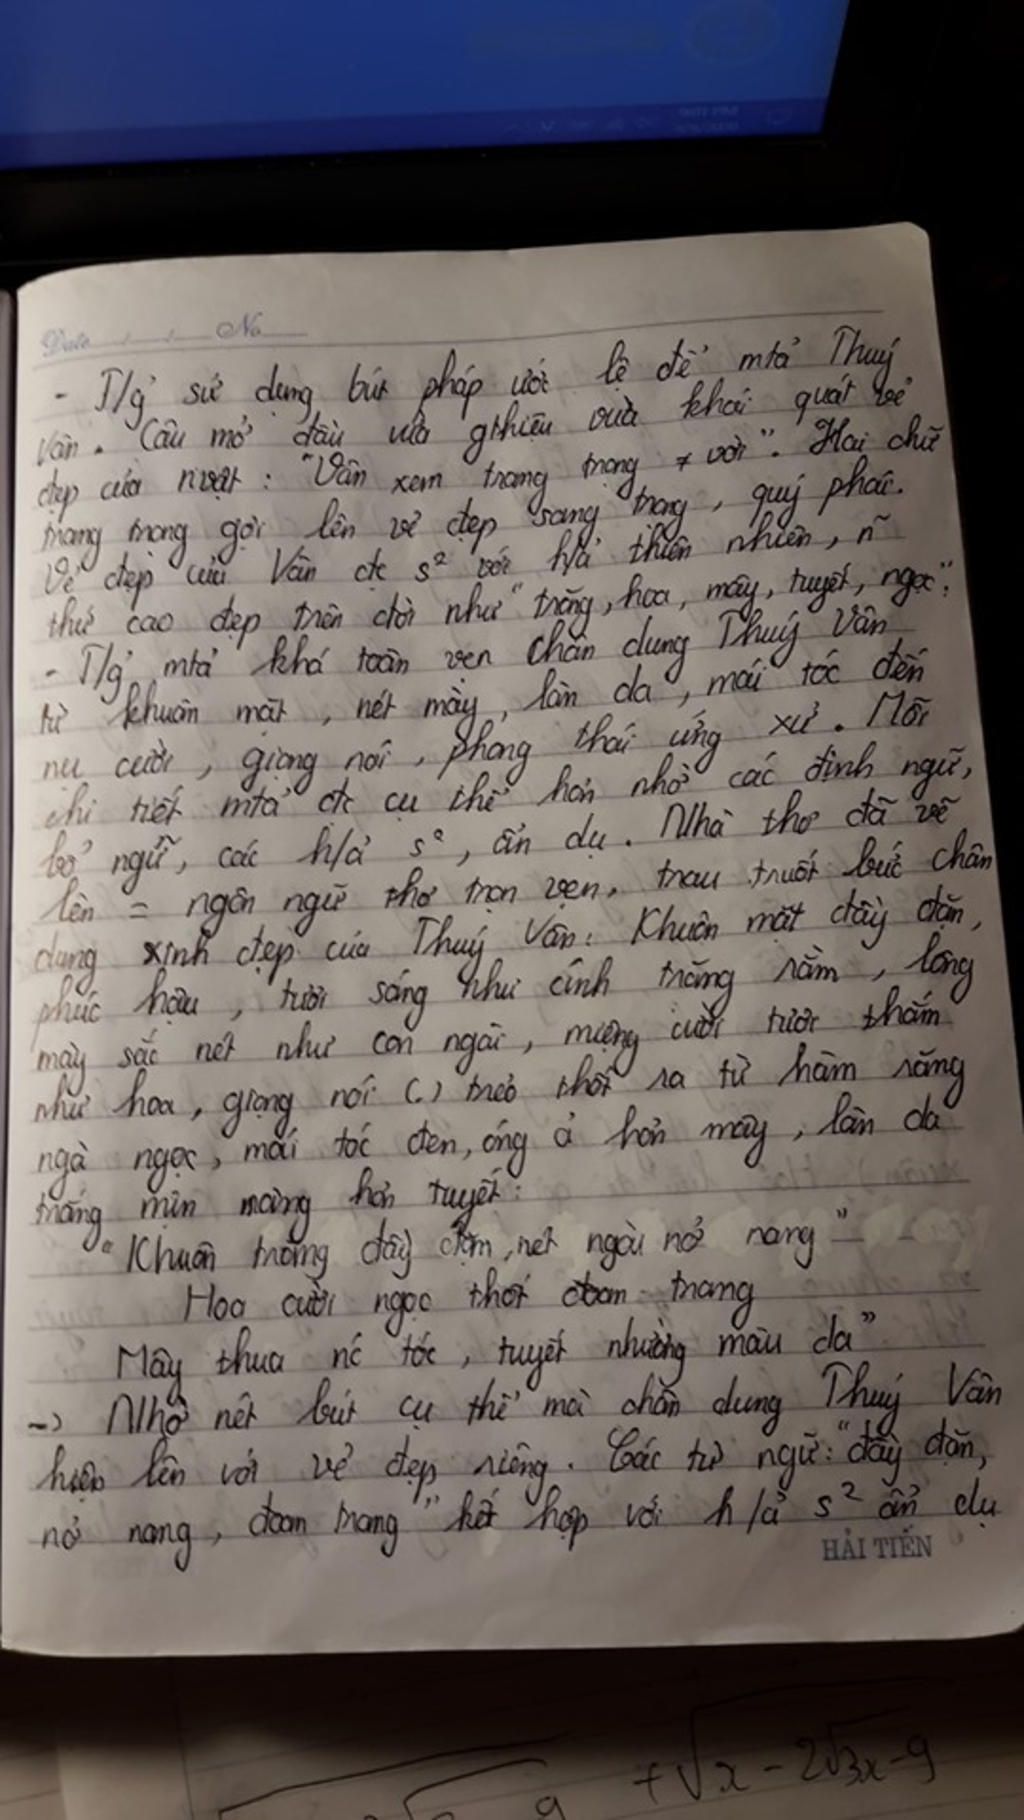 Date / / No
- T/g' sử dụng bút pháp ước lệ để mtả Thuý
Vân. Câu mở đầu vừa gthiệu vừa khái quát vẻ
đẹp của nvật: "Vân xem trang trọng ≠ vời". Hai chữ
trang trọng gợi lên vẻ đẹp sang trọng, quý phái.
Vẻ đẹp của Vân đc s² với h/ả thiên nhiên, n~
thứ cao đẹp trên đời như "trăng, hoa, mây, tuyết, ngọc".
- T/g' mtả khá toàn vẹn chân dung Thuý Vân
từ khuôn mặt, nét mày, làn da, mái tóc đến
nụ cười, giọng nói, phong thái ứng xử. Mỗi
chi tiết mtả đc cụ thể hơn nhờ các định ngữ,
bổ ngữ, các h/ả s², ẩn dụ. Nhà thơ đã vẽ
lên = ngôn ngữ thơ trọn vẹn, trau truốt bức chân
dung xinh đẹp của Thuý Vân: Khuôn mặt đầy đặn,
phúc hậu, tươi sáng như ánh trăng rằm, lông
mày sắc nét như con ngài, miệng cười tươi thắm
như hoa, giọng nói (.) trẻo thốt ra từ hàm răng
ngà ngọc, mái tóc đen, óng ả hơn mây, làn da
trắng mịn màng hơn tuyết:
"Khuôn trăng đầy đặn, nét ngài nở nang"
Hoa cười ngọc thốt đoan trang
Mây thua nc tóc, tuyết nhường màu da"
-> Nhờ nét bút cụ thể mà chân dung Thuý Vân
hiện lên với vẻ đẹp riêng. Các từ ngữ: "đầy đặn,
nở nang, đoan trang" kết hợp với h/ả s² ẩn dụ
HẢI TIẾN
+√x-2√3x-9